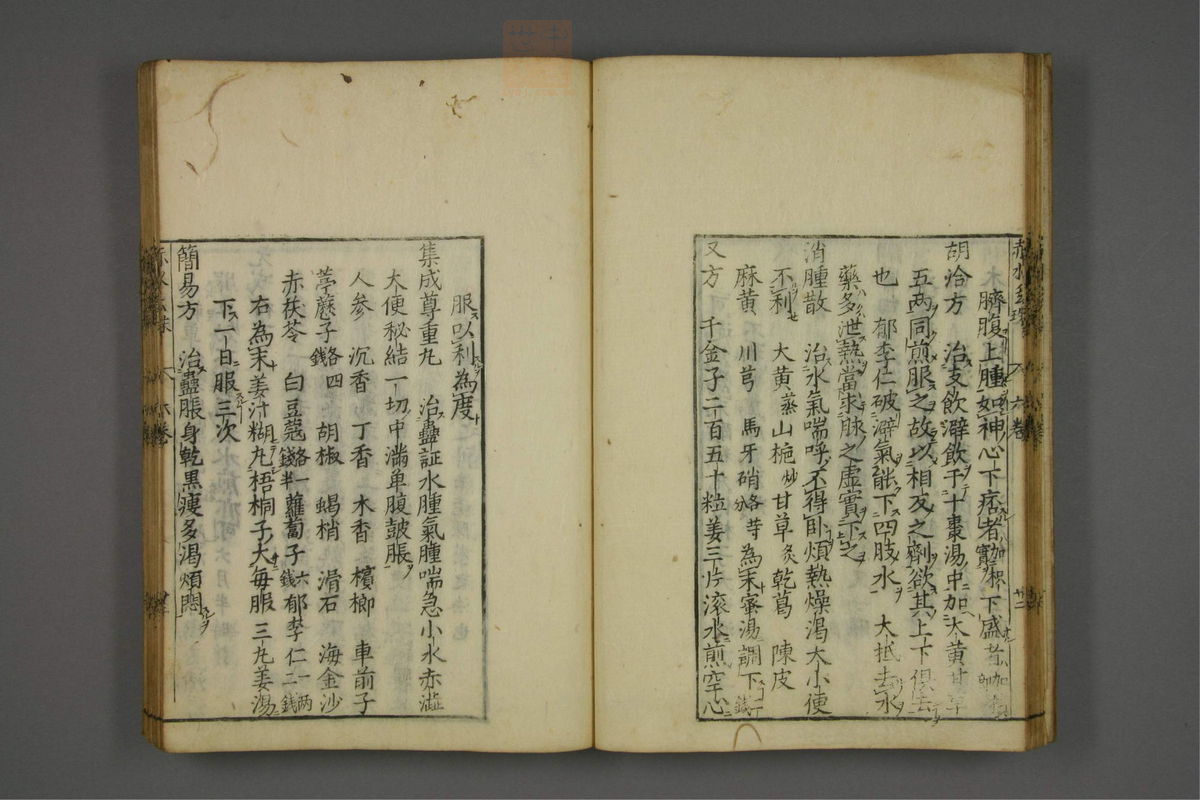 臍腹上腫如神心下痞者加枳實下盛者加
胡洽方 治支飲澼飲于十棗湯中加大黃甘草
五兩同煎服之故以相反之劑欲其上下俱去
也 郁李仁破澼氣能下四肢水 大抵去水
藥多泄熱當求脉之虛實下之
消腫散 治水氣喘呼不得卧煩熱燥渴大小便
不利 大黃蒸 山梔炒 甘草炙 乾葛 陳皮
麻黃 川芎 馬牙硝各等分 為末蜜湯調下二錢
又方 千金子二百五十粒姜三片滚水煎空心
服以利為度
集成尊重丸 治蠱証水腫氣腫喘急小水赤澁
大便秘結一切中滿單腹皷脹
人參 沉香 丁香 木香 檳榔 車前子
葶藶子各四錢 胡椒 蝎梢 滑石 海金沙
赤茯苓 白豆蔻各一錢半 蘿蔔子六錢 郁李仁一兩二錢
右為末姜汁糊丸梧桐子大每服三丸姜湯
下一日服三次
簡易方 治蠱脹身乾黑瘦多渴煩悶